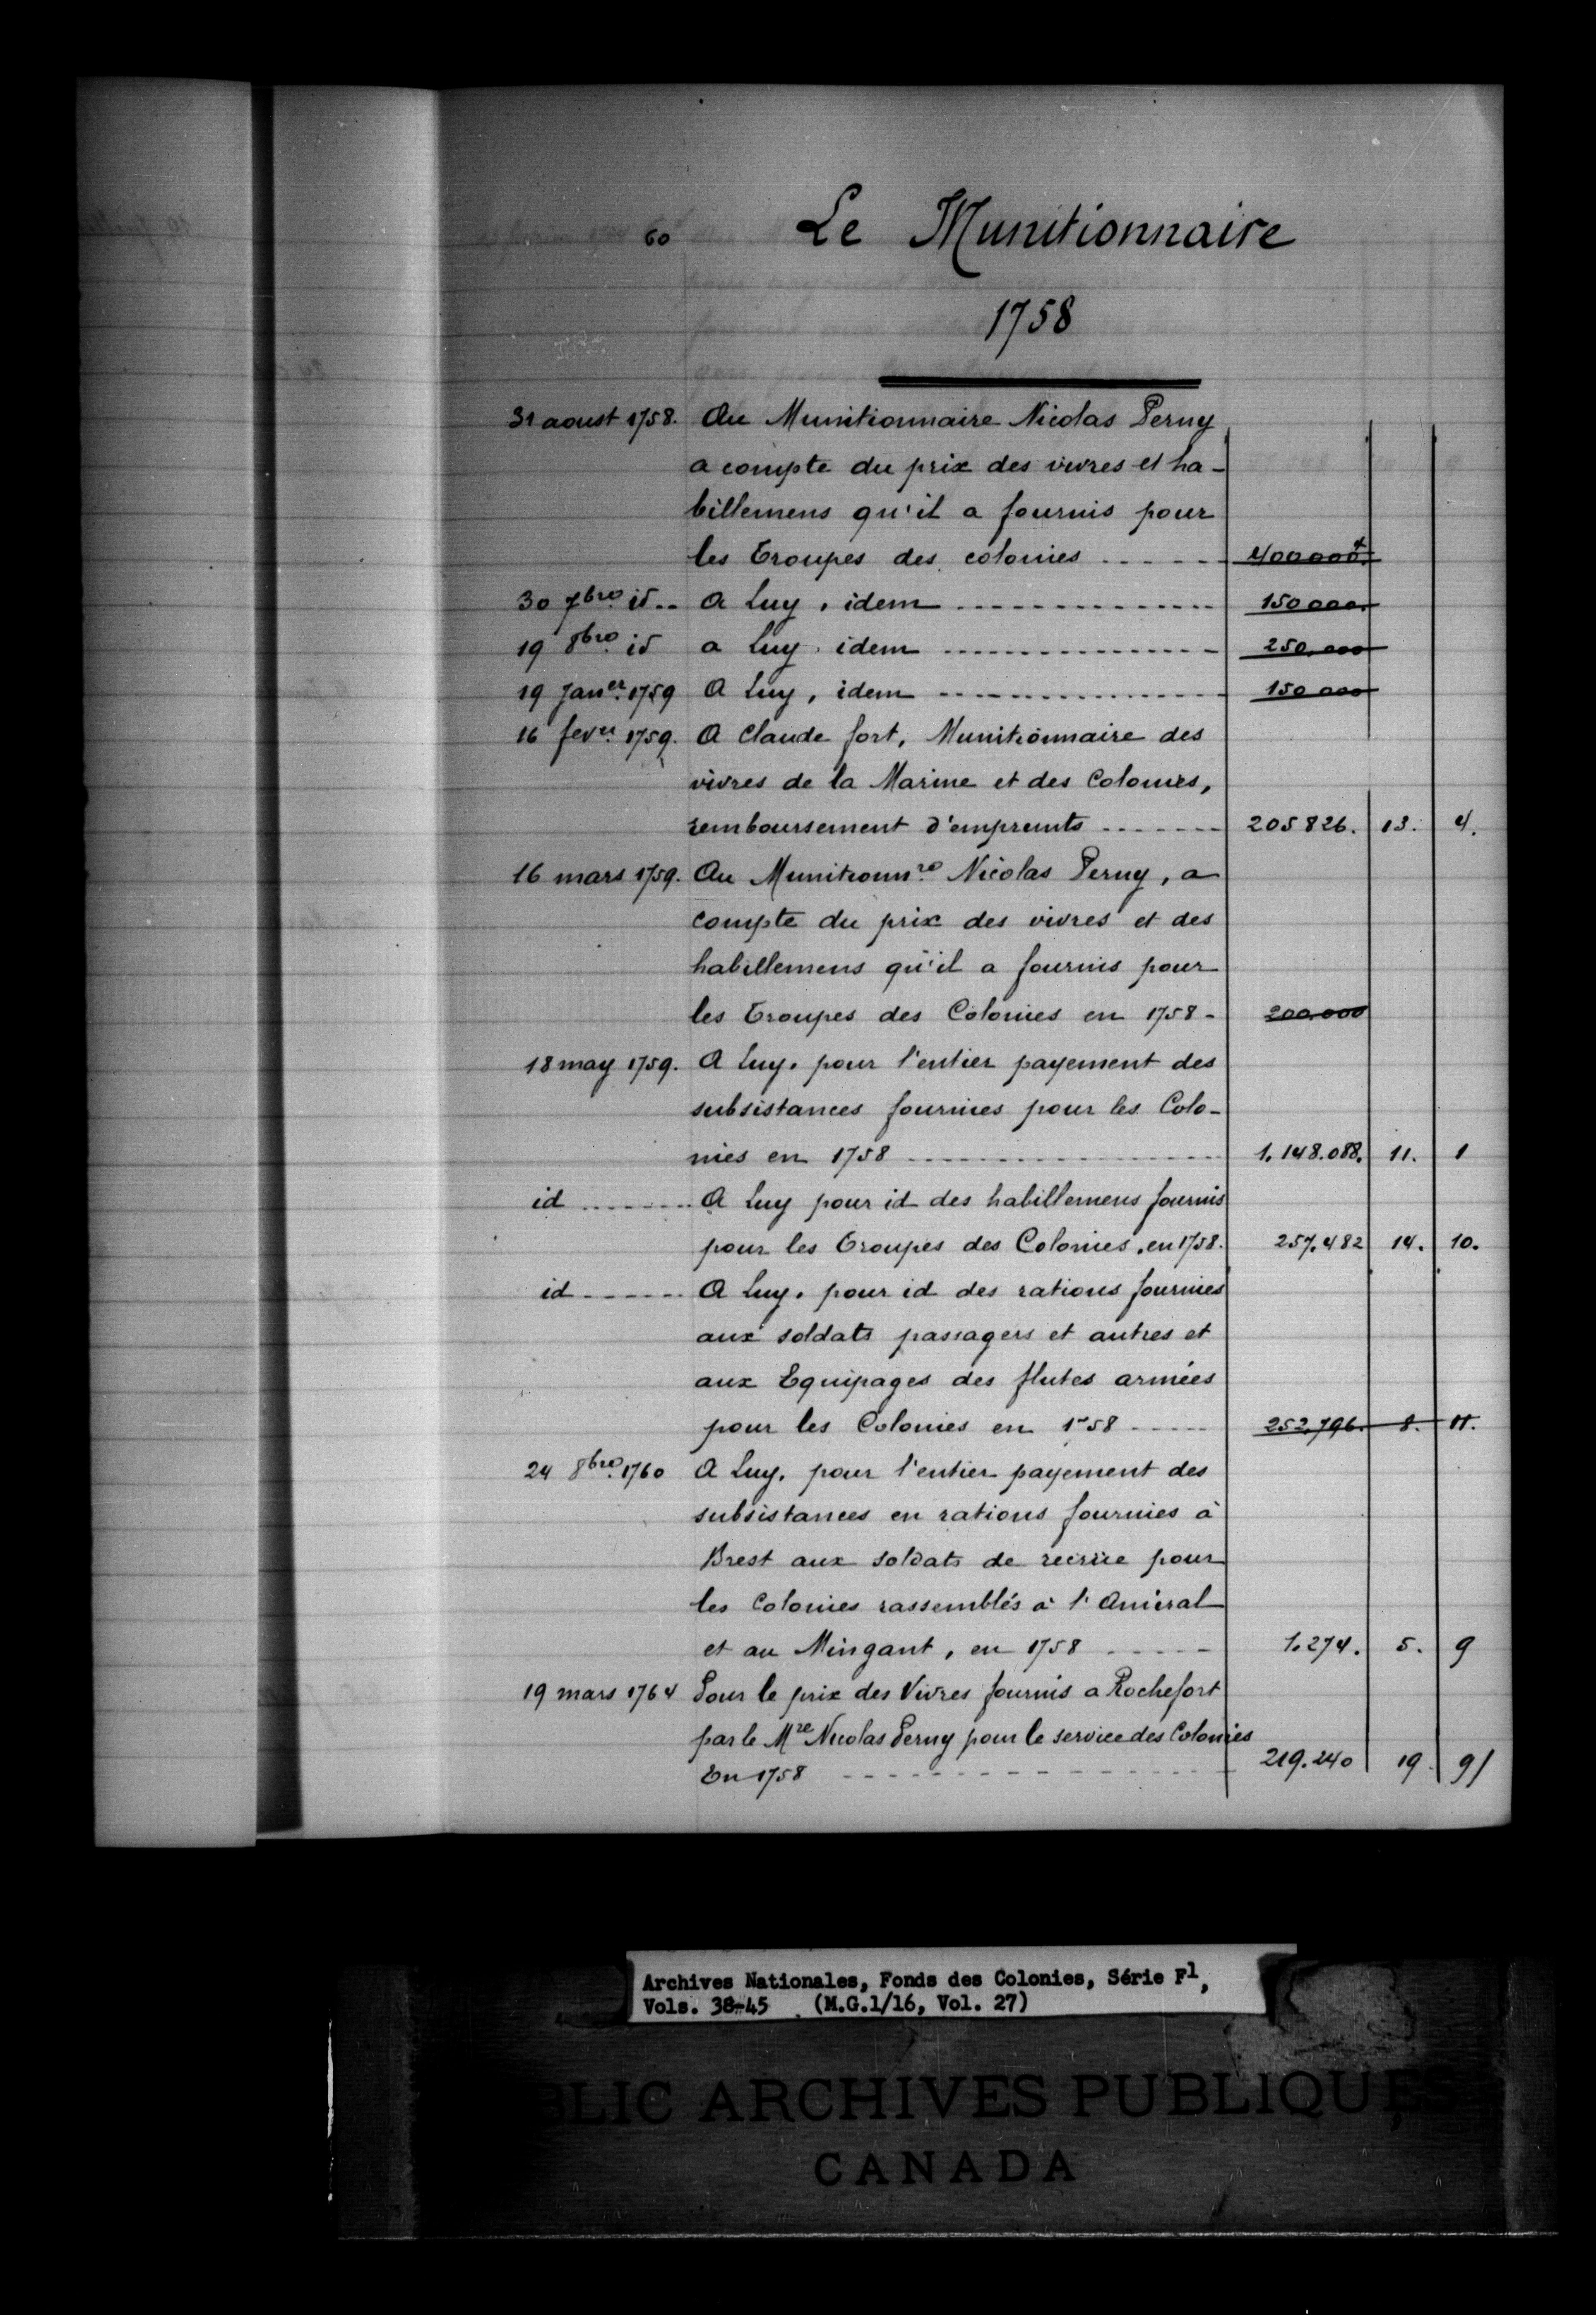 60 Le Munitionnaire
1758
31 aoust 1758. Au Munitionnaire Nicolas Perny
a compte du prix des vivres et ha-
billemens qu'il a fournis pour
les Troupes des colonies ------ 400000#
30 7bre id.. A Luy, idem ------ 150000.
19 8bre id a Luy idem ------ 250.000
19 Janer. 1759 A Luy, idem ------ 150000
16 fevrr 1759. A Claude fort, Munitionnaire des
vivres de la Marine et des Colonies,
remboursement d'emprunts ------ 205826. 13. 4.
16 mars 1759. Au Munitionnre Nicolas Perny, a
compte du prix des vivres et des
habillemens qu'il a fournis pour
les Troupes des Colonies en 1758 - 200.000
18 may 1759. A Luy. pour l'entier payement des
subsistances fournies pour les Colo-
nies en 1758 ------ 1.148.088. 11. 1
id ------ A Luy pour id des habillemens fournis
pour les Troupes des Colonies, en 1758. 257.482 14. 10.
id ------ A Luy. pour id des rations fournies
aux soldats passagers et autres et
aux Equipages des flutes armées
pour les Colonies en 1758 ----- 252.796. 8. 11.
24 8bre. 1760 A Luy. pour l'entier payement des
subsistances en rations fournies à
Brest aux soldats de recrüe pour
les Colonies rassemblés à l'Amiral
et au Mingant, en 1758 ----- 1.274. 5. 9
19 mars 1764 Pour le prix des Vivres fournis a Rochefort
par le Mre Nicolas Perny pour le service des Colonies
En 1758 ------ 219.240 19. 9/
Archives Nationales, Fonds des Colonies, Série F1,
Vols. 38-45 (M.G.1/16, Vol. 27)
BLIC ARCHIVES PUBLIQUES
CANADA